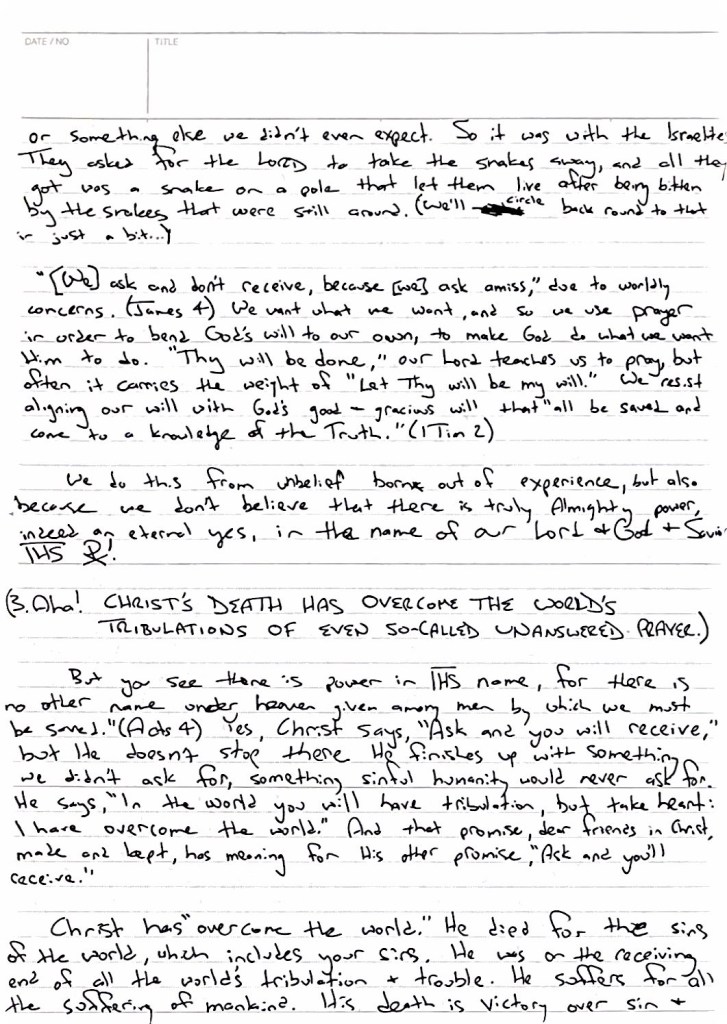 DATE / NO TITLE
or something else we didn't even expect. So it was with the Israelite
They asked for the LORD to take the snakes away, and all they
got was a snake on a pole that let them live after being bitten
by the snakes that were still around. (We'll circle back round to that
in just a bit...)
"[We] ask and don't receive, because [we] ask amiss," due to worldly
concerns. (James 4) We want what we want, and so we use prayer
in order to bend God's will to our own, to make God do what we want
Him to do. "Thy will be done," our Lord teaches us to pray, but
often it carries the weight of "Let Thy will be my will." We resist
aligning our will with God's good + gracious will that "all be saved and
come to a knowledge of the Truth." (1 Tim 2)
We do this from unbelief borne out of experience, but also
because we don't believe that there is truly Almighty power,
indeed an eternal yes, in the name of our Lord + God + Savior
IHS ☧!
(3. Aha! CHRIST'S DEATH HAS OVERCOME THE WORLD'S
TRIBULATIONS OF EVEN SO-CALLED UNANSWERED PRAYER.)
But you see there is power in IHS name, for there is
no other name under heaven given among men by which we must
be saved." (Acts 4) Yes, Christ says, "Ask and you will receive,"
but He doesn't stop there. He finishes up with something
we didn't ask for, something sinful humanity would never ask for.
He says, "In the world you will have tribulation, but take heart:
I have overcome the world." And that promise, dear friends in Christ,
made and kept, has meaning for His other promise, "Ask and you'll
receive."
Christ has "overcome the world." He died for the sins
of the world, which includes your sins. He was on the receiving
end of all the world's tribulation + trouble. He suffers for all
the suffering of mankind. His death is victory over sin +